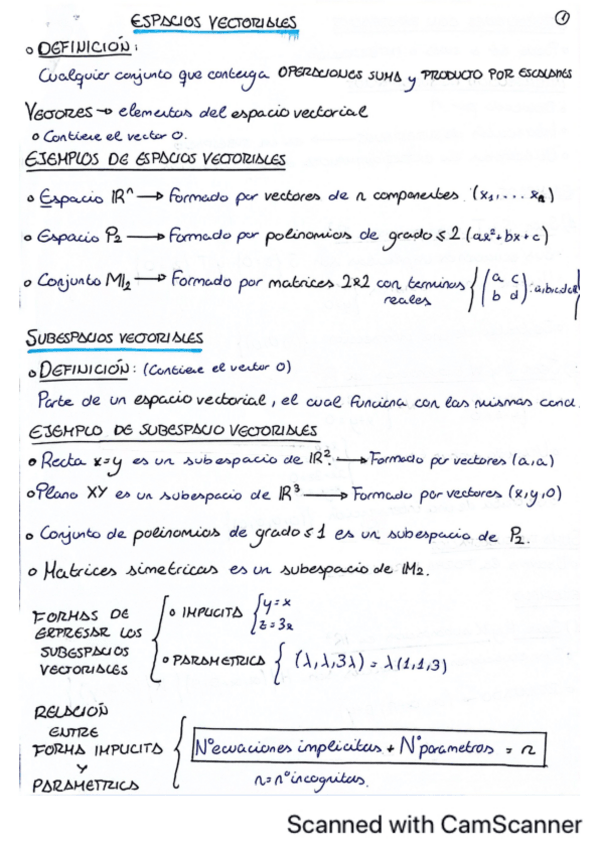 ESPACIOS VECTORIALES
1
o DEFINICIÓN:
Cualquier conjunto que contenga OPERACIONES SUMA y PRODUCTO POR ESCALARES
VECTORES → elementos del espacio vectorial
o Contiene el vector 0.
EJEMPLOS DE ESPACIOS VECTORIALES
o Espacio ℝⁿ → Formado por vectores de n componentes (x₁,... xₙ)
o Espacio P₂ → Formado por polinomios de grado ≤ 2 (ax²+bx+c)
o Conjunto M₂ → Formado por matrices 2x2 con terminos reales {(a c
b d): a,b,c,d∈ℝ
SUBESPACIOS VECTORIALES
o DEFINICIÓN: (Contiene el vector 0)
Parte de un espacio vectorial, el cual funciona con las mismas cond.
EJEMPLO DE SUBESPACIO VECTORIALES
o Recta x=y es un subespacio de ℝ². → Formado por vectores (a,a)
o Plano XY es un subespacio de ℝ³ → Formado por vectores (x,y,0)
o Conjunto de polinomios de grado ≤ 1 es un subespacio de P₂.
o Matrices simetricas es un subespacio de M₂.
FORMAS DE EXPRESAR LOS SUBESPACIOS VECTORIALES
o IMPLICITA { y=x
z=3x
o PARAMETRICA { (λ,λ,3λ) = λ(1,1,3)
RELACIÓN
ENTRE
FORMA IMPLICITA
Y
PARAMETRICA
Nº ecuaciones implicitas + Nº parametros = n
n = nº incognitas.
Scanned with CamScanner